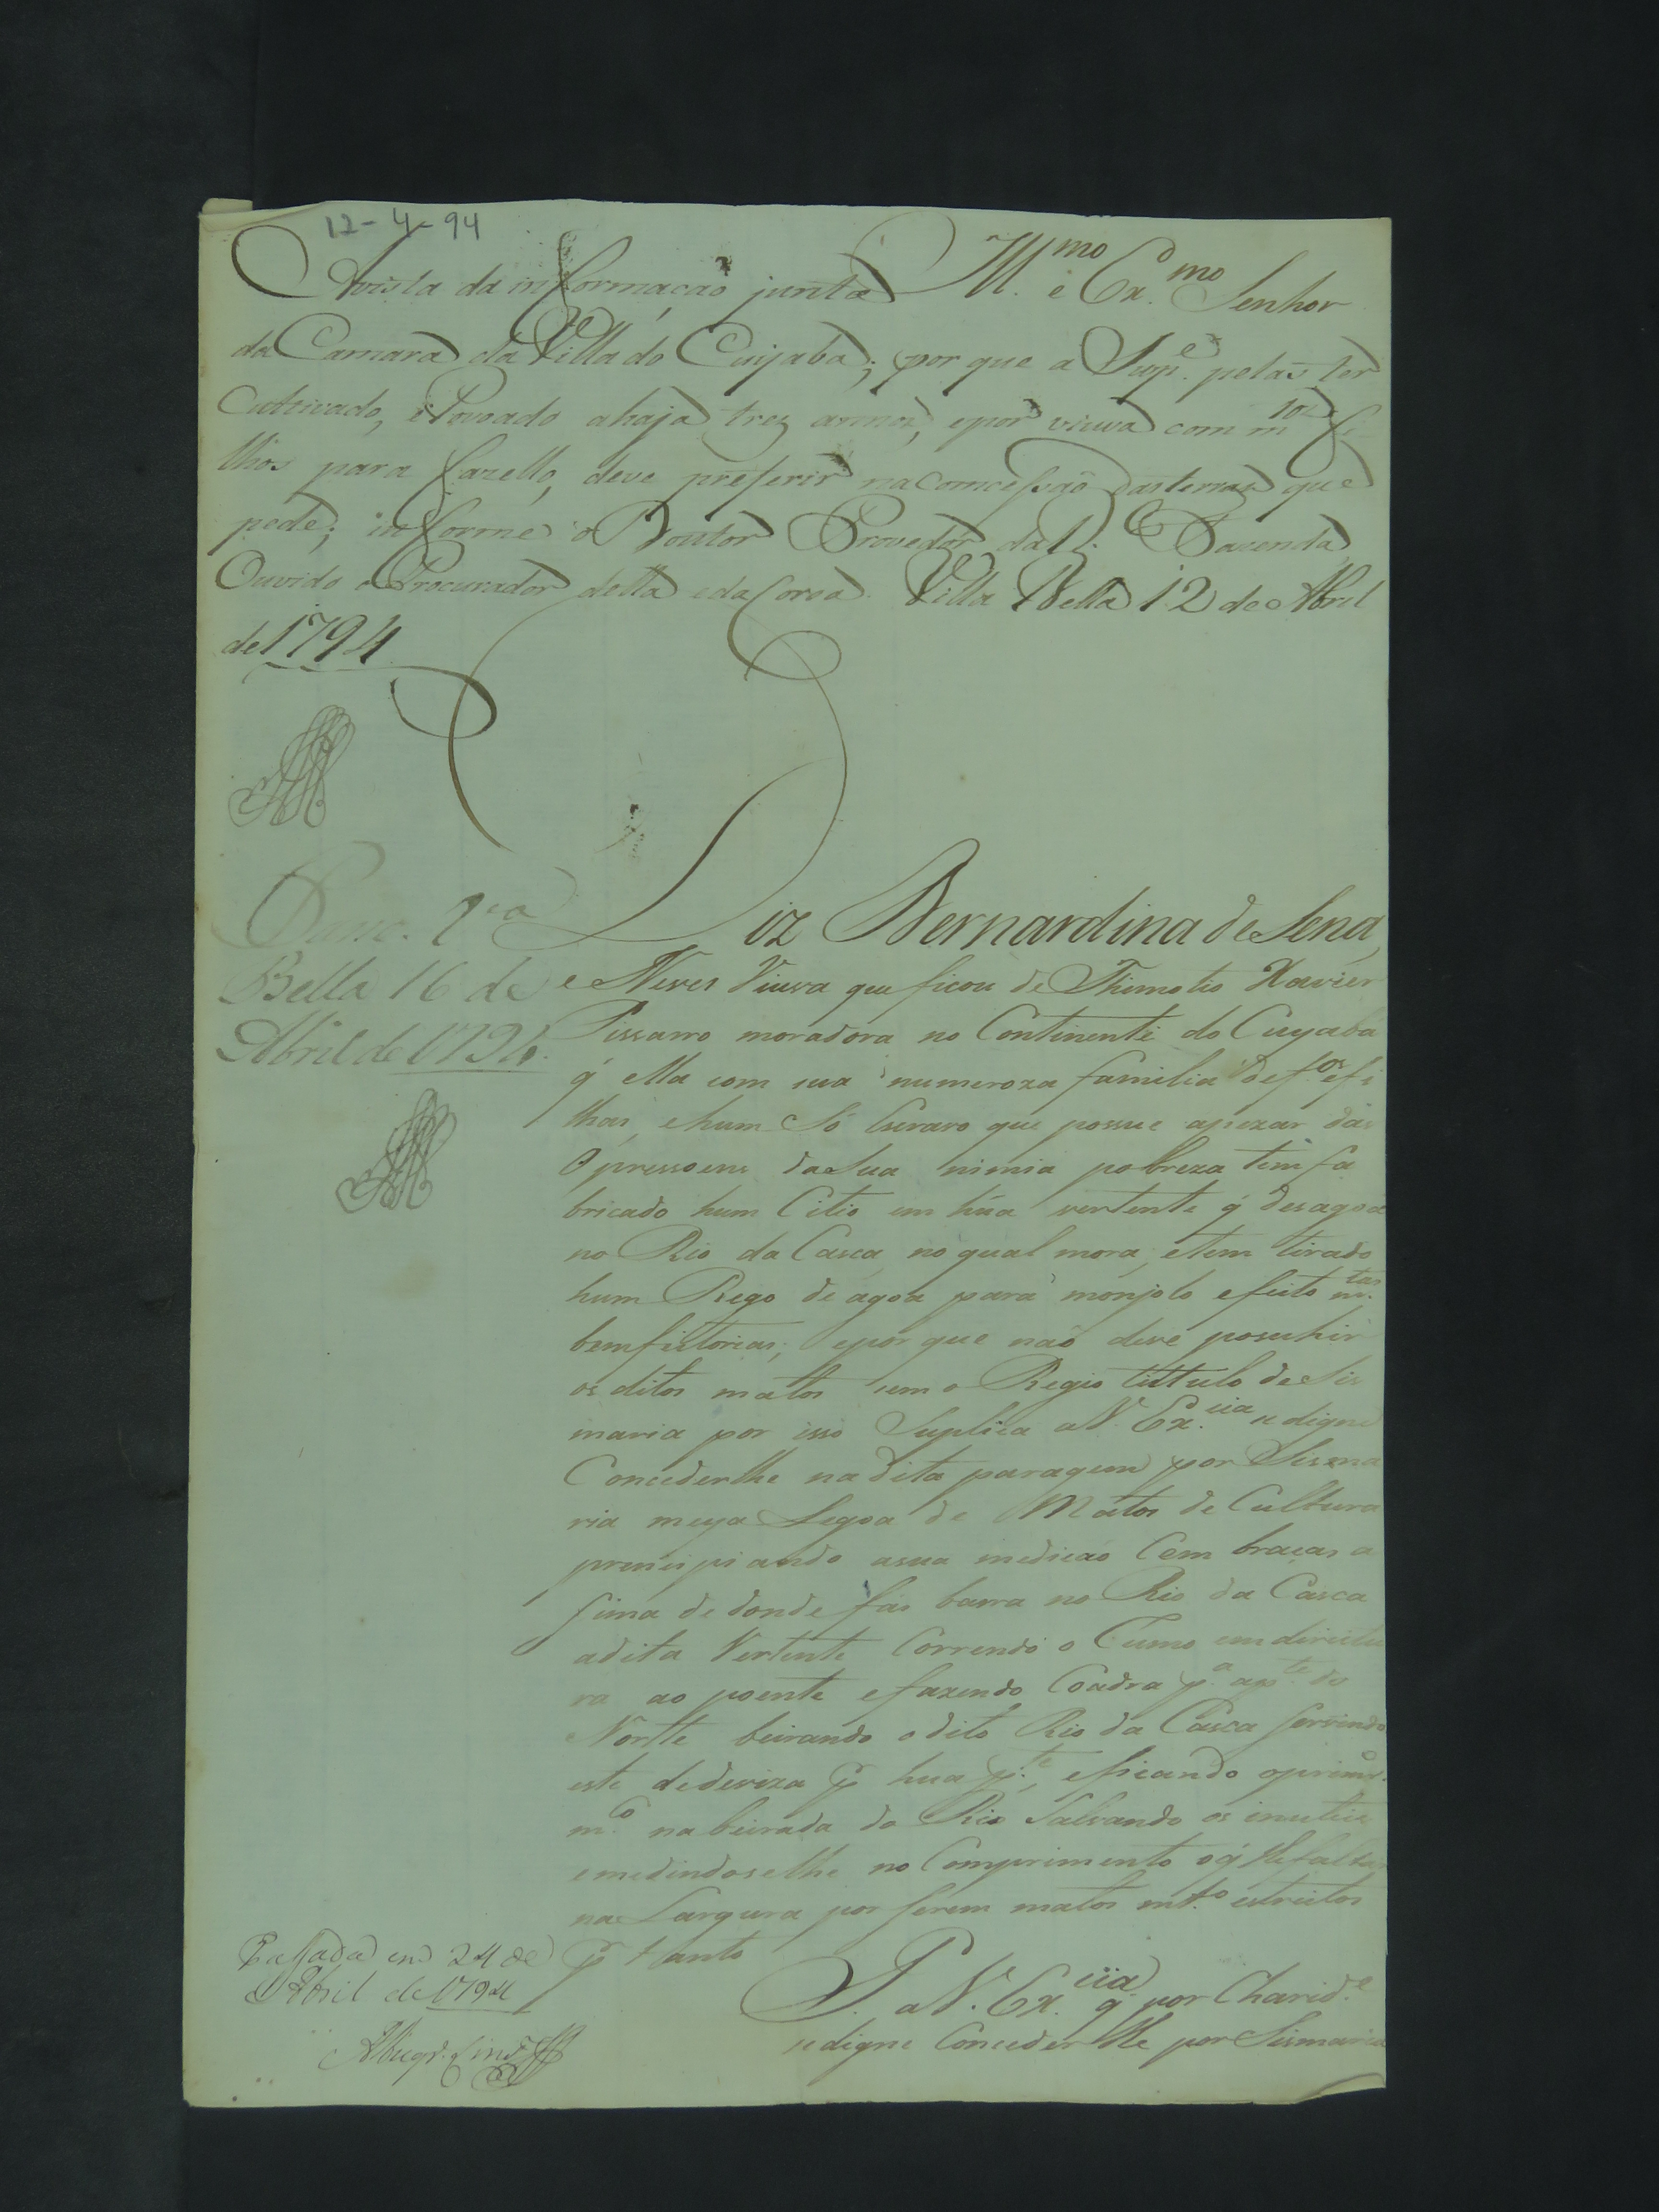 12-4-94
Ill.mo e Ex.mo Senhor
Avista da informação junta
da Camara da Villa do Cuyaba; por que a Sup.e pelas ter
Cultivado, e Povoado ahaja trez annos, epor viuva com m.tos fi
lhos para fazello, deve preferir na comcessão das terras que
pede; informe o Doutor Provedor da R. Fazenda
Ouvido o Procurador della e da Coroa. Villa Bella 12 de Abril
de 1794
Diz Bernardina de Sena,
e Neves Viuva que ficou de Thimotio Xavier
Pissarro moradora no Continente do Cuyabá
q' ella com sua numeroza familia de f.os efi
lhas, ehum Só Escravo que possue apezar das
Opressoens da Sua nimia pobreza tem fa
bricado hum Citio em húa vertente q' desagoa
no Rio da Casca, no qual mora, etem tirado
hum Rego de agoa para monjolo efeito m.tas
bemfeitorias; epor que não deve posuhir
os ditos matos sem o Regio tittulo de Sis
maria por isso Suplica a V. Ex.cia se digne
Concederlhe na dita paragem por Sisma
ria meya Legoa de Matos de Cultura
principiando asua medicão Cem braças a
sima de donde fas barra no Rio da Casca
adita Vertente Correndo o Cumo em direitu
ra ao poente efazendo Coadra p.a ap.te do
Norte beirando odito Rio da Casca servindo
este dedeviza p hua p.te, eficando oprim.ro
m.co na beirada do Rio Salvando os inuteis
emedindoselhe no Comprimento oq' lhefaltar
na Largura por serem matos mt.o estreitos
p tanto
P. a V. Ex.cia q' por Charid.e
sedigne Conceder lhe por Sismaria
Bella 16 de
Abril de 1794.
Passada em 24 de
Abril de 1794